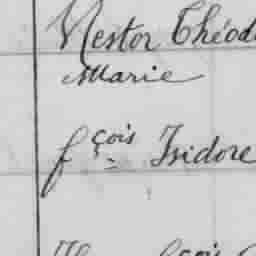 Nestor Théod
Marie
fçois Isidore